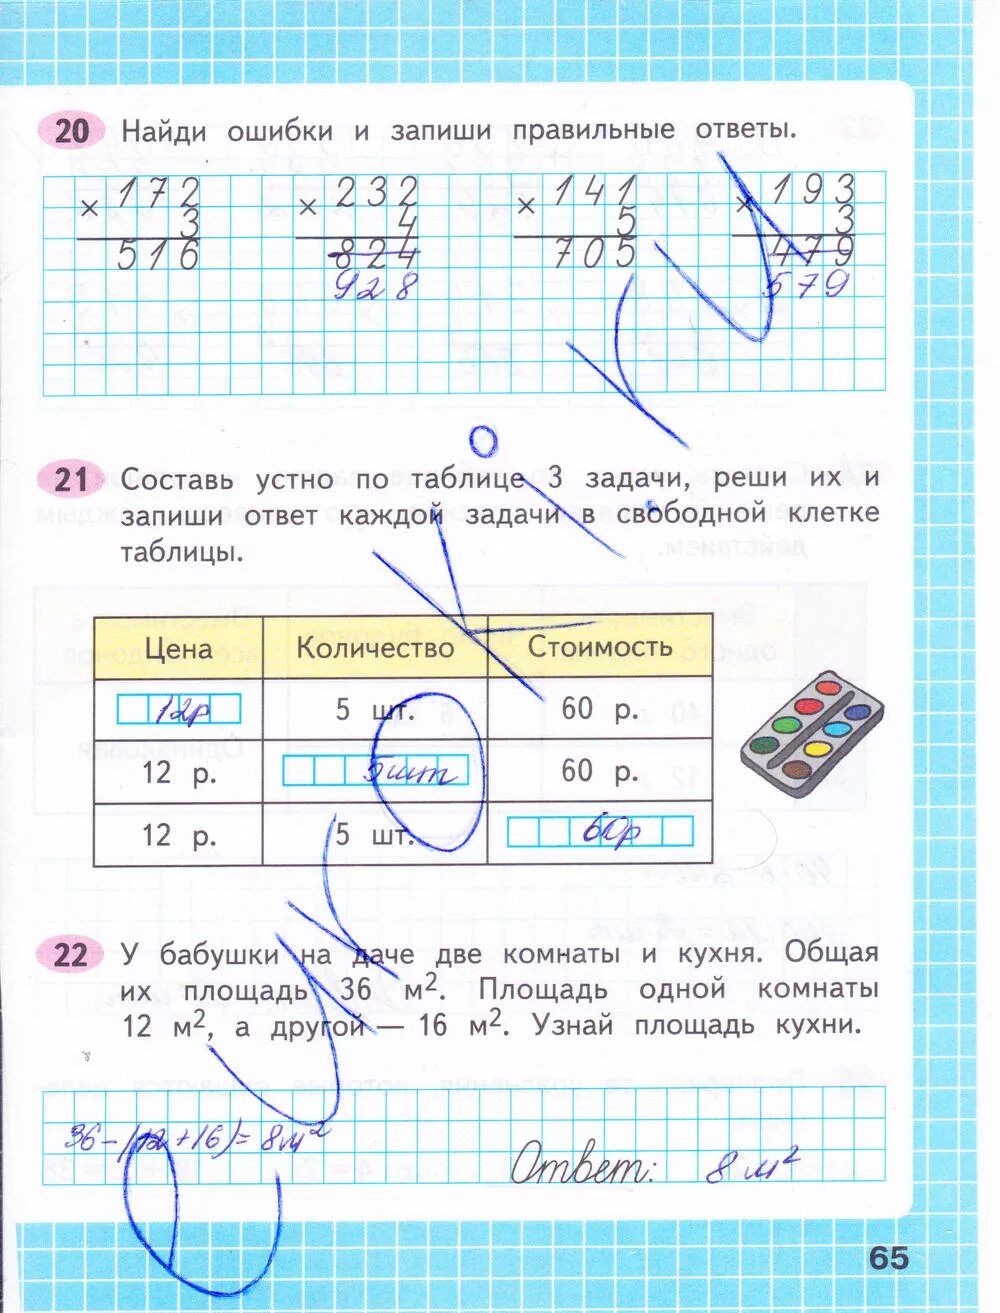 20 Найди ошибки и запиши правильные ответы.
172 232 141 193
× 3 × 4 × 5 × 3
516 824 705 479
928 579
21 Составь устно по таблице 3 задачи, реши их и
запиши ответ каждой задачи в свободной клетке
таблицы.
Цена Количество Стоимость
12р 5 шт. 60 р.
12 р. 5шт 60 р.
12 р. 5 шт. 60р
22 У бабушки на даче две комнаты и кухня. Общая
их площадь 36 м². Площадь одной комнаты
12 м², а другой — 16 м². Узнай площадь кухни.
36-(12+16)=8м²
Ответ: 8 м²
65